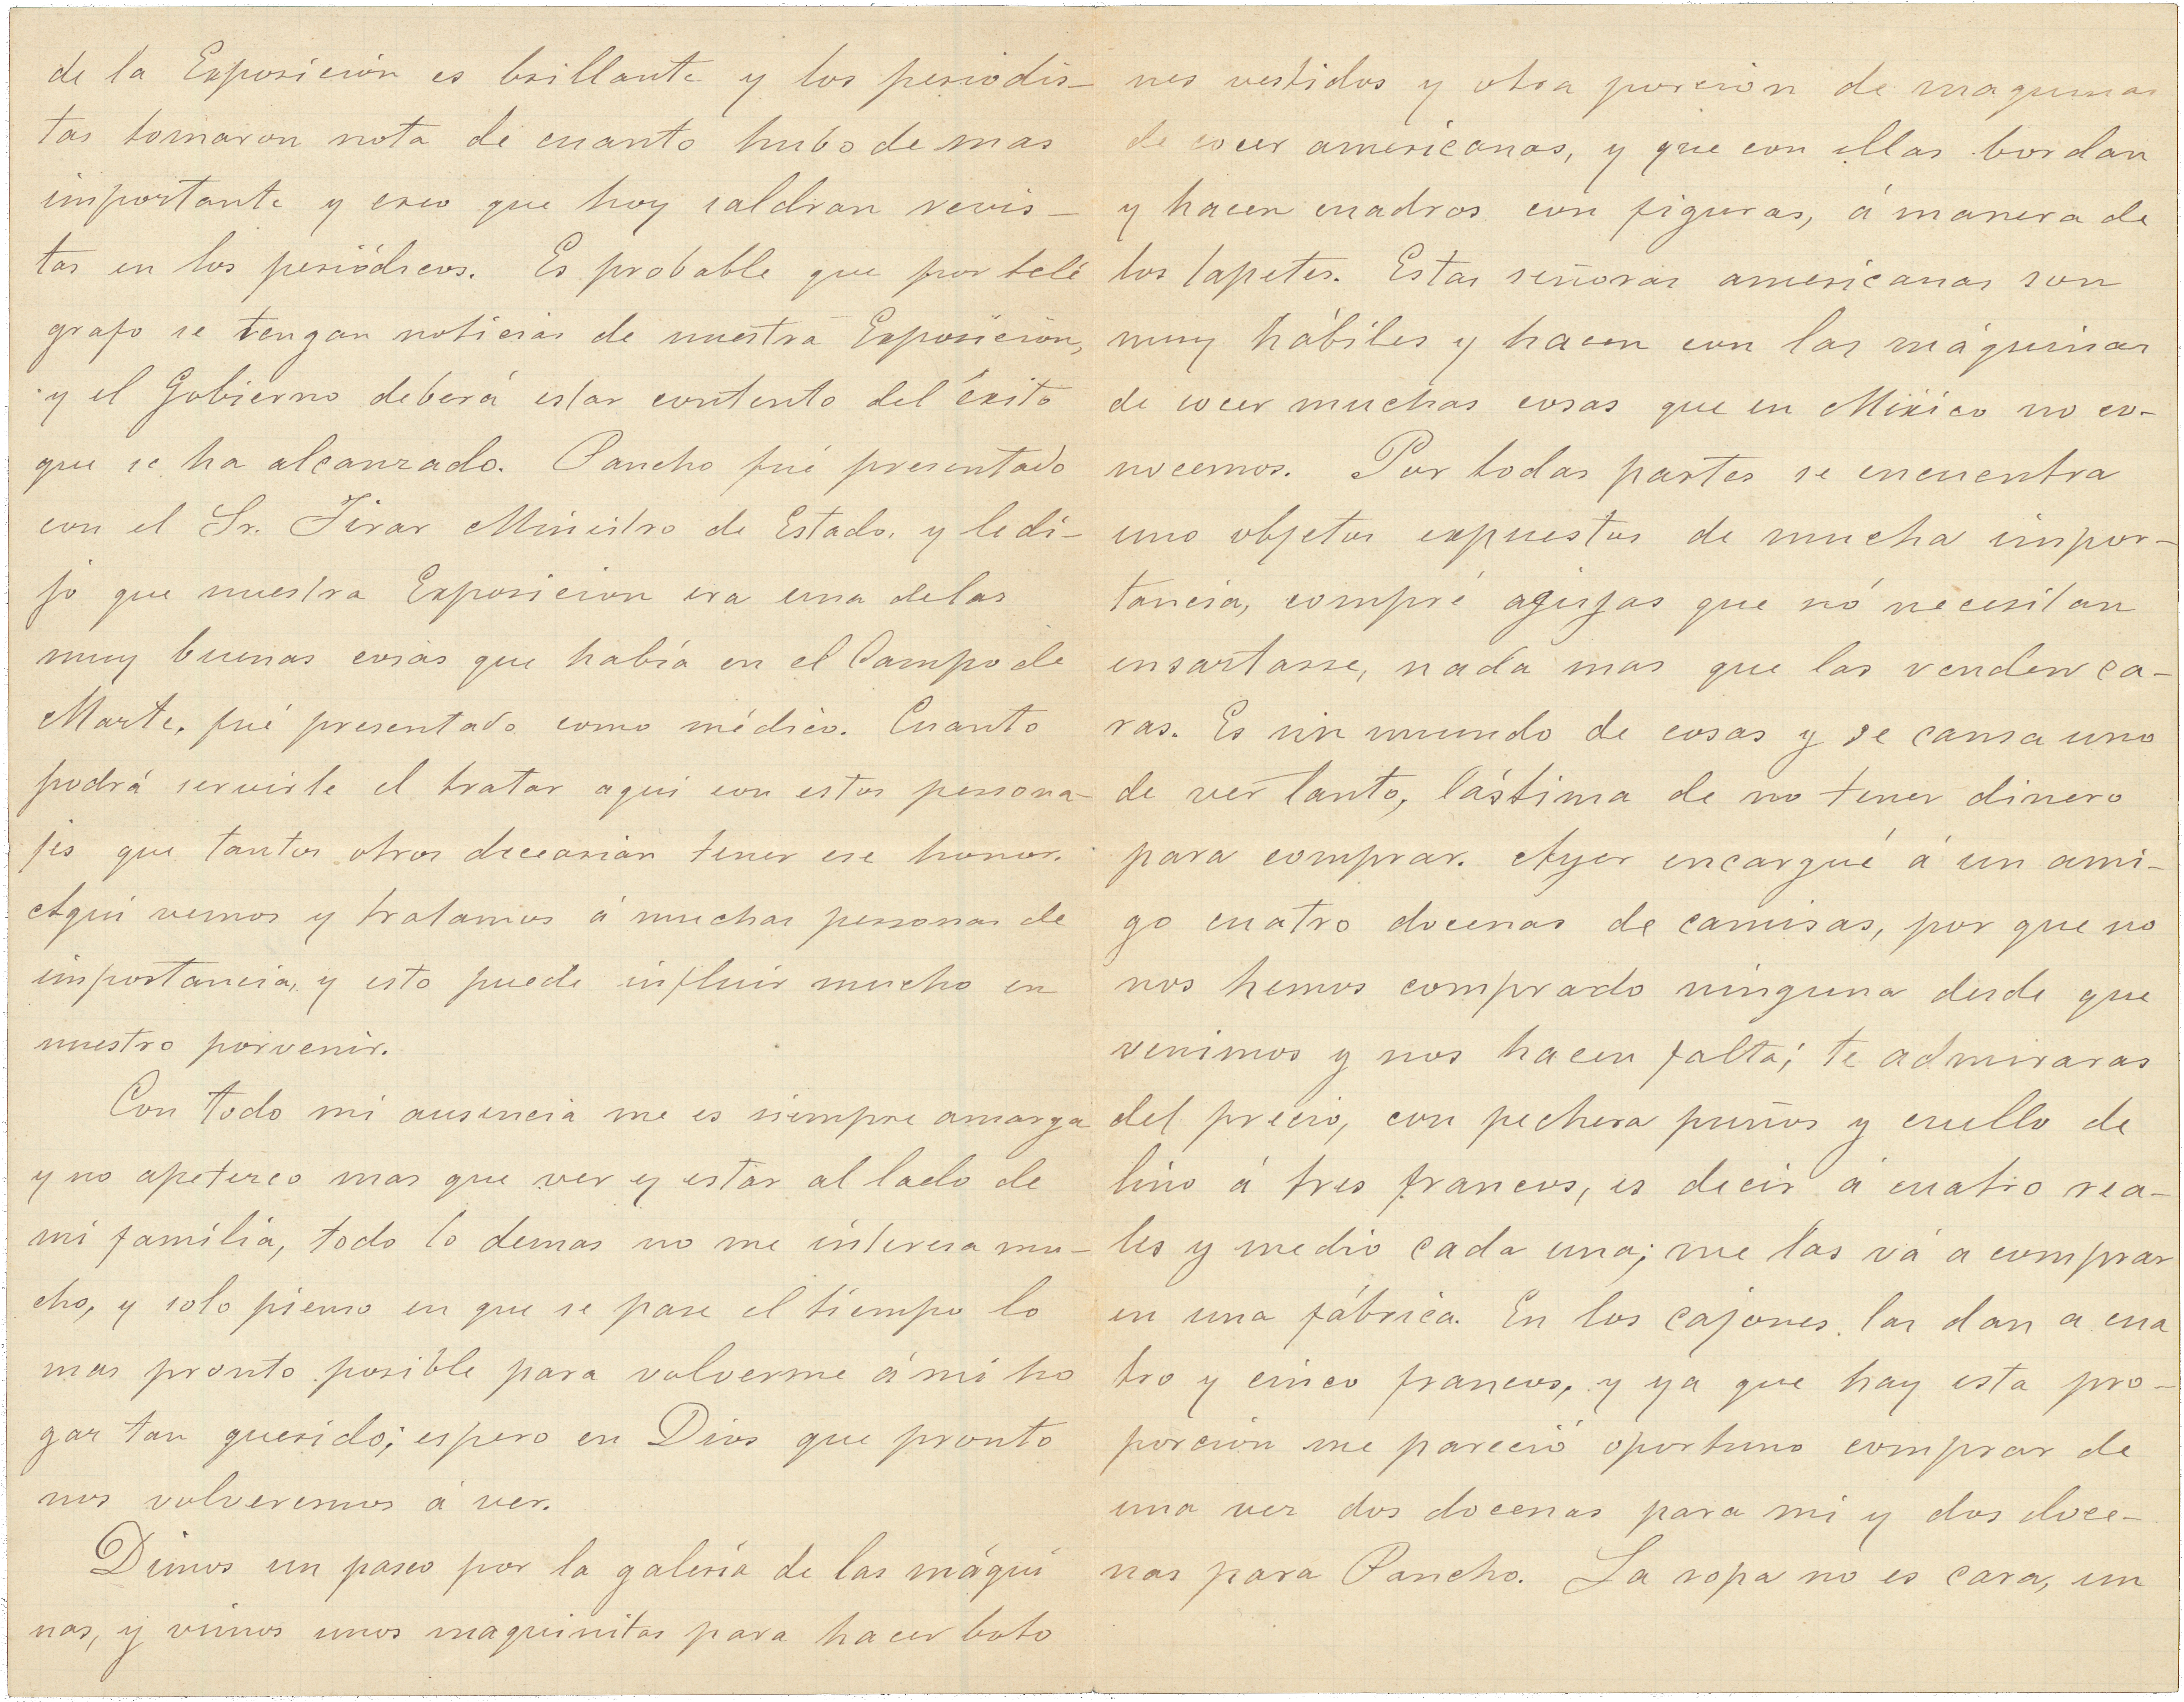 de la Exposición es brillante y los periodis-
tas tomaron nota de cuanto hubo de mas
importante y creo que hoy saldran revis-
tas en los periódicos. Es probable que por telé
grafo se tengan noticias de nuestra Exposición,
y el Gobierno deberá estar contento del éxito
que se ha alcanzado. Pancho fué presentado
con el Sr. Tirar Ministro de Estado, y le di-
jo que nuestra Exposicion era una de las
muy buenas cosas que había en el Campo de
Marte, fué presentado como médico. Cuanto
podrá servirle el tratar aqui con estos persona-
jes que tantos otros decearian tener ese honor.
Aqui vemos y tratamos á muchas personas de
importancia, y esto puede influir mucho en
nuestro porvenir.
Con todo mi ausencia me es siempre amarga
y no apetezco mas que ver y estar al lado de
mi familia, todo lo demas no me interesa mu-
cho, y solo pienso en que se pase el tiempo lo
mas pronto posible para volverme á mi ho
gar tan querido; espero en Dios que pronto
nos volveremos á ver.
Dimos un paseo por la galería de las máqui
nas, y vimos unos maquinitas para hacer boto
nes vestidos y otra porcion de maquinas
de cocer americanas, y que con ellas bordan
y hacen cuadros con figuras, á manera de
los tapetes. Estas señoras americanas son
muy hábiles y hacen con las máquinas
de cocer muchas cosas que en México no co-
nocemos. Por todas partes se encuentra
uno objetos expuestos de mucha impor-
tancia, compré agujas que nó necesitan
ensartarse, nada mas que las venden ca-
ras. Es un mundo de cosas y se cansa uno
de ver tanto, lástima de no tener dinero
para comprar. Ayer encargué á un ami-
go cuatro docenas de camisas, por que no
nos hemos comprado ninguna desde que
venimos y nos hacen falta; te admiraras
del precio, con pechera puños y cuello de
lino á tres francos, es decir á cuatro rea-
les y medio cada una; me las vá a comprar
en una fábrica. En los cajones las dan a cua
tro y cinco francos, y ya que hay esta pro-
porcion me pareció oportuno comprar de
una vez dos docenas para mi y dos doce-
nas para Pancho. La ropa no es cara, un